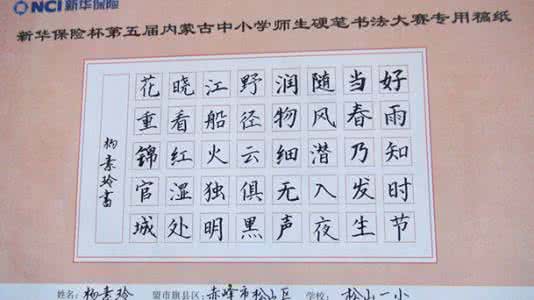 NCI新华保险
新华保险杯第五届内蒙古中小学师生硬笔书法大赛专用稿纸
好雨知时节
当春乃发生
随风潜入夜
润物细无声
野径云俱黑
江船火独明
晓看红湿处
花重锦官城
杨素玲书
姓名: 杨素玲 盟市旗县区: 赤峰市松山区 学校: 松山一小